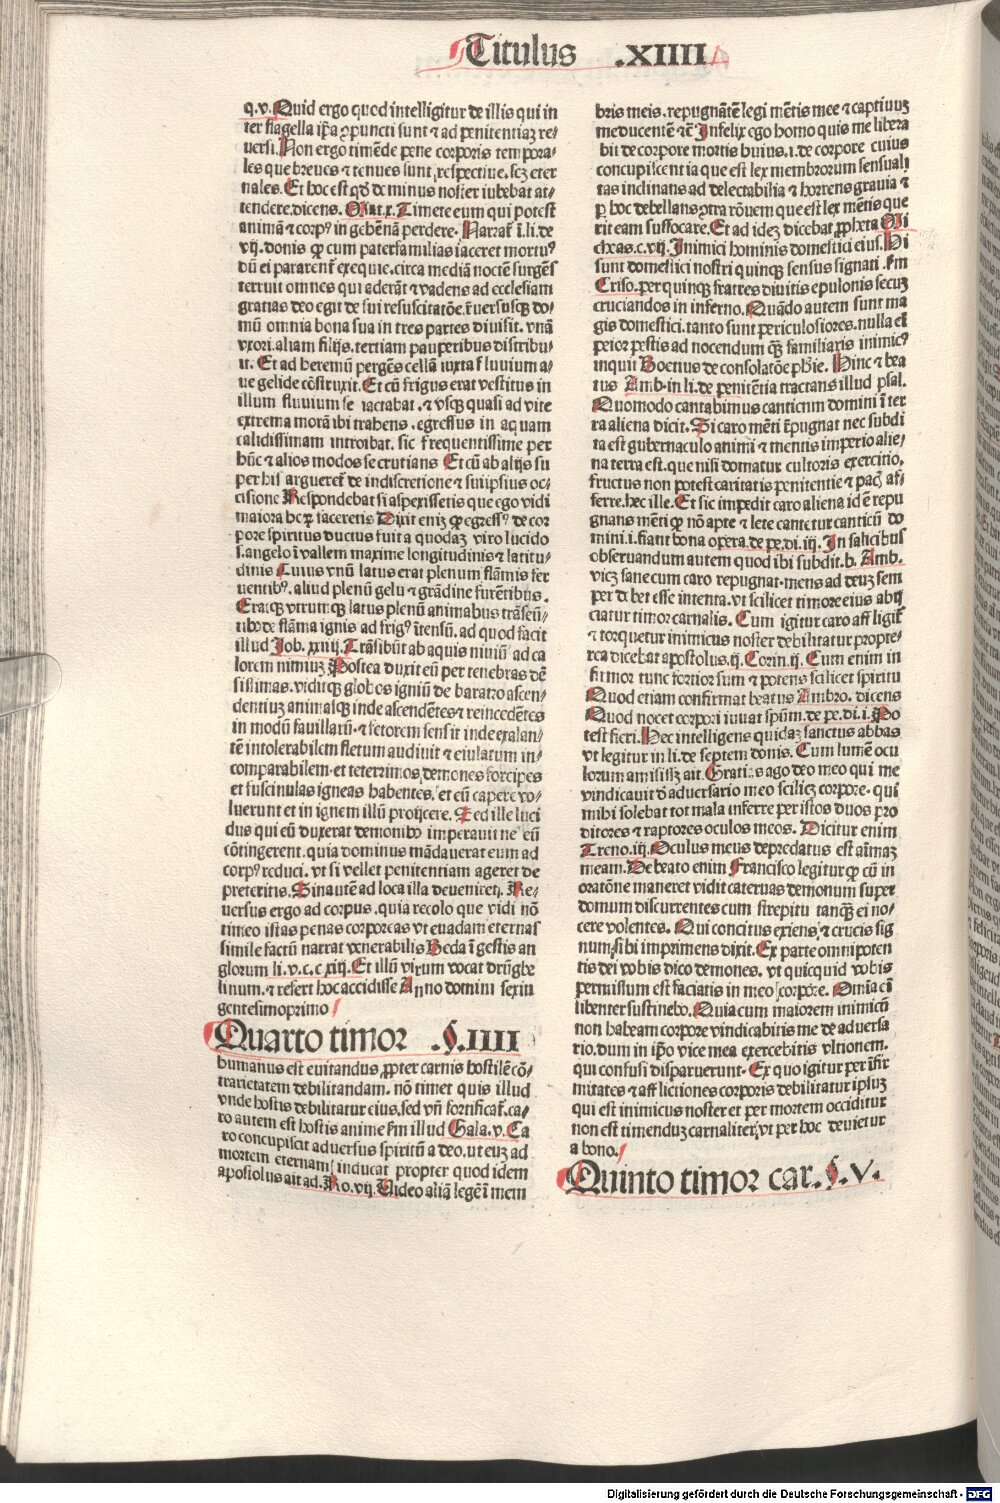 Titulus .XIIII
q.v. Quid ergo quod intelligitur de illis qui in
ter flagella ip̄a ꝯpuncti sunt ⁊ ad penitentiaꝫ re⸗
uersi. Non ergo timēde pene corporis tempora⸗
les que breues ⁊ tenues sunt respectiue. scꝫ eter
nales. Et hoc est qd̄ dominus noster iubebat at⸗
tendere. dicens. Mat.x. Timete eum qui potest
animā ⁊ corpꝰ in gehēnā perdere. Narrat̄ ī li. de
vij. donis ꝙ cum paterfamilias iaceret mortuꝰ
dū ei pararent̄ exequie. circa mediā noctē surgēs
terruit omnes qui aderāt ⁊ vadens ad ecclesiam
gratias deo egit de sui resuscitatōe. r̄uersusqꝫ do⸗
mū omnia bona sua in tres partes diuisit. vnā
vxori. aliam filijs. tertiam pauperibus distribu⸗
it. Et ad heremū pergēs cellā iuxta fluuium a⸗
que gelide cōstruxit. Et cū frigus erat vestitus in
illum fluuium se iactabat. ⁊ vsqꝫ quasi ad vite
extrema morā ibi trahens. egressus in aquam
calidissimam introibat. sic frequentissime per
hūc ⁊ alios modos se crutians Et cū ab alijs su
per his argueret̄ de indiscretione ⁊ suiipsius oc⸗
cisione Respondebat si asperissetis que ego vidi
maiora hec ꝑ faceretis Dixit enīꝫ ꝙ egressꝰ de cor
pore spiritus ductus fuit a quodaꝫ viro lucido
s. angelo ī vallem maxime longitudinis ⁊ latitu⸗
dinis Cuius vnū latus erat plenum flāmis fer
uentibꝰ. aliud plenū gelu ⁊ grādine furētibus.
Eratqꝫ vtrumqꝫ latus plenū animabus trāseū⸗
tibꝰ de flāma ignis ad frigꝰ ītensū. ad quod facit
illud Job. xxiiij. Trāsibūt ab aquis niuiū ad ca
lorem nimiuꝫ Postea duxit eū per tenebras dē
sissimas. viditqꝫ globos igniū de baratro ascen⸗
dentiuꝫ animasqꝫ inde ascendētes ⁊ reincedētes
in modū fauillarū. ⁊ fetorem sensit inde exalan⸗
tē intolerabilem fletum audiuit ⁊ eiulatum in⸗
comparabilem. et teterrimos demones forcipes
et fuscinulas igneas habentes. et eū capere vo⸗
luerunt et in ignem illū proijcere. Sed ille luci
dus qui eū duxerat demonibꝰ imperauit ne eū
cōtingerent. quia dominus mādauerat eum ad
corpꝰ reduci. vt si vellet penitentiam ageret de
preteritis. Sin autē ad loca illa deueniret. Re⸗
uersus ergo ad corpus. quia recolo que vidi nō
timeo istas penas corporeas vt euadam eternas
simile factū narrat venerabilis Beda ī gestis an
glorum li. v. c. c xiij. Et illū virum vocat drūghe
linum. ⁊ refert hoc accidisse Anno domini sexin
gentesimoprimo
Quarto timor .§.IIII
humanus est euitandus ꝓpter carnis hostilē cō⸗
trarietatem debilitandam. nō timet quis illud
vnde hostis debilitatur eius. sed vn̄ fortificat̄. ca⸗
ro autem est hostis anime ẜm illud Gala. v. Ca
ro concupiscit aduersus spiritū a deo. ut euꝫ ad
mortem eternam inducat propter quod idem
apostolus ait ad. Ro. vij. Video aliā legē ī mem
bris meis. repugnātē legi mētis mee ⁊ captiuuꝫ
me ducentē ⁊c̄ Infelix ego homo quis me libera
bit de corpore mortis huius. i. de corpore cuius
concupiscentia que est lex membrorum sensuali
tas inclinans ad delectabilia ⁊ horrens grauia ⁊
ꝑ hoc debellans ꝯtra rōnem que est lex mētis que
rit eam suffocare. Et ad ideꝫ dicebat ꝓpheta Mi
cheas. c. vij. Inimici hominis domestici eius. Hi
sunt domestici nostri quinqꝫ sensus signati. ẜm
Criso. per quinqꝫ fratres diuitis epulonis secuꝫ
cruciandos in inferno. Quādo autem sunt ma
gis domestici. tanto sunt periculosiores. nulla eī
peior pestis ad nocendum qꝫ familiaris inimicꝰ
inquit Boetius de consolatōe phīe. Hinc ⁊ bea
tus Amb. in li. de penitētia tractans illud psal.
Quomodo cantabimus canticum domini ī ter
ra aliena dicit. Si caro mēti īpugnat nec subdi
ta est gubernaculo animi ⁊ mentis imperio alie⸗
na terra est. que nisi domatur cultoris exercitio.
fructus non potest caritatis penitentie ⁊ pacꝭ af⸗
ferre. hec ille. Et sic impedit caro aliena id ē repu
gnans mēti ꝙ nō apte ⁊ lete cantetur canticū do
mini. i. fiant bona opera. de pe. di. iij. In salicibus
obseruandum autem quod ibi subdit. b. Amb.
vicꝫ sane cum caro repugnat. mens ad deuꝫ sem
per debet esse intenta. vt scilicet timore eius abij
ciatur timor carnalis. Cum igitur caro affligit̄
⁊ torquetur inimicus noster debilitatur propte⸗
rea dicebat apostolus. ij. Corin. ij. Cum enim in
firmor tunc fortior sum ⁊ potens scilicet spiritu
Quod etiam confirmat beatus Ambro. dicens
Quod nocet corpori iuuat spūm. de pe. di. i. Po
test fieri. Hec intelligens quidaꝫ sanctus abbas
vt legitur in li. de septem donis. Cum lumē ocu
lorum amisissꝫ ait. Gratias ago deo meo qui me
vindicauit d̄ aduersario meo scilicꝫ corpore. qui
mihi solebat tot mala inferre per istos duos pro
ditores ⁊ raptores oculos meos. Dicitur enim
Treno. iij. Oculus meus depredatus est aīmaꝫ
meam. De beato enim Francisco legitur ꝙ cū in
oratōne maneret vidit cateruas demonum super
domum discurrentes cum strepitu tanqꝫ ei no⸗
cere volentes. Qui concitus exiens ⁊ crucis sig
num sibi imprimens dixit. Ex parte omnipoten
tis dei vobis dico demones. vt quicquid vobis
permissum est faciatis in meo corpore. Omnia eī
libenter sustinebo. Quia cum maiorem inimicū
non habeam corpore vindicabitis me de aduersa
rio. dum in ip̄o vice mea exercebitis vltionem.
qui confusi disparuerunt. Ex quo igitur per īfir
mitates ⁊ afflictiones corporis debilitatur ipsuꝫ
qui est inimicus noster et per mortem occiditur
non est timenduꝫ carnaliter vt per hoc deuietur
a bono.
Quinto timor car. §. V.
Digitalisierung gefördert durch die Deutsche Forschungsgemeinschaft - DFG